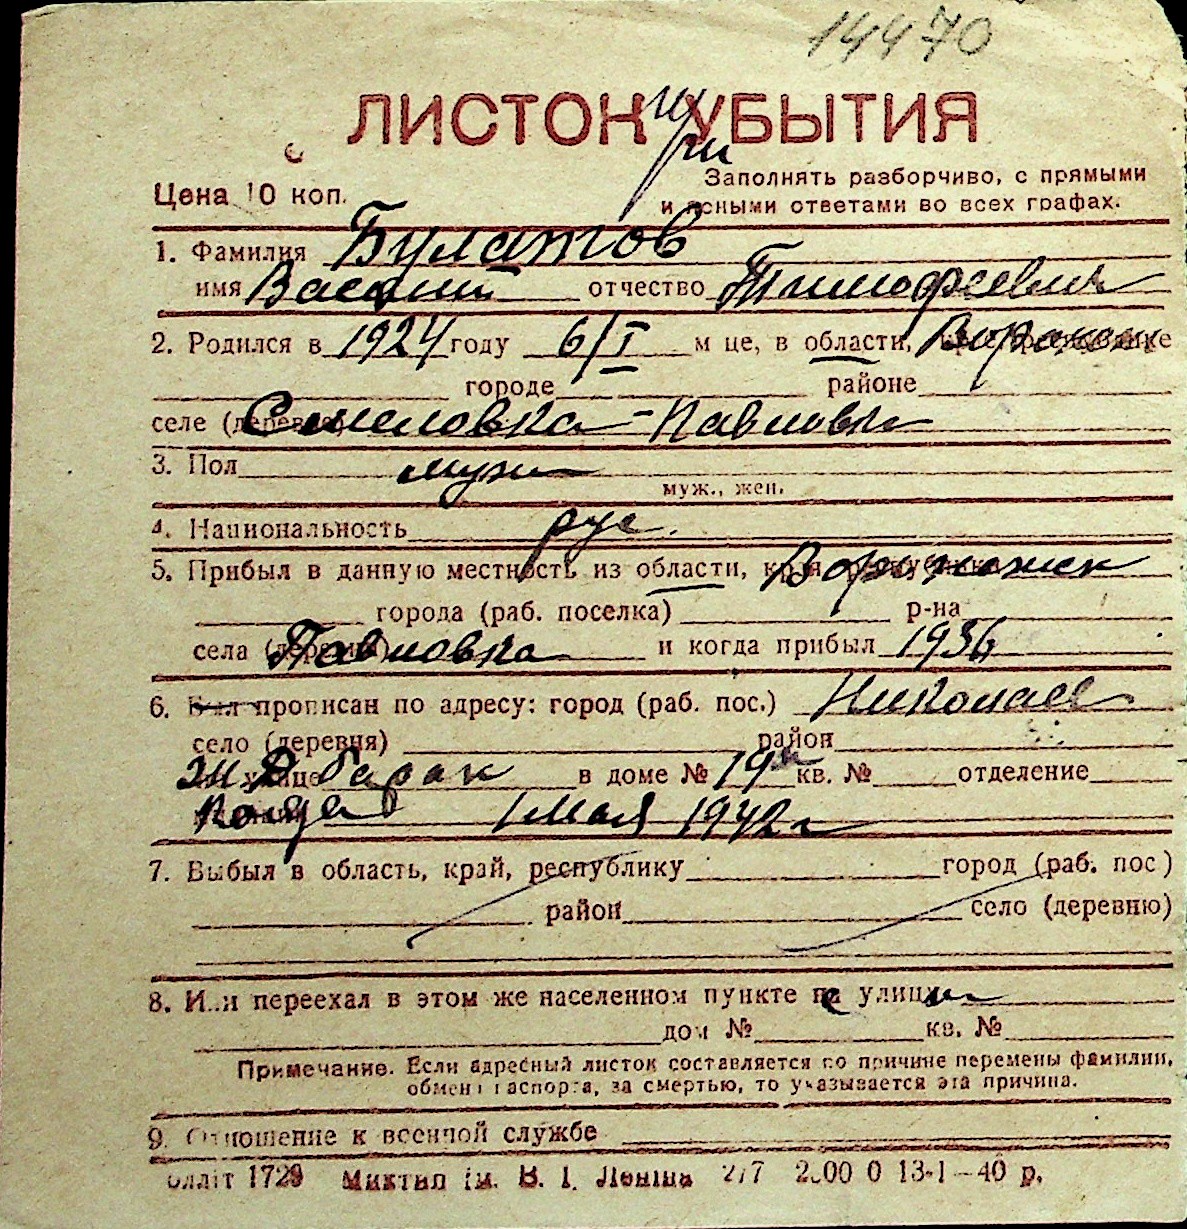 14470
ЛИСТОК УБЫТИЯ
при
Цена 10 коп.
Заполнять разборчиво, с прямыми
и ясными ответами во всех графах.
1. Фамилия Булатов
имя Василий отчество Тимофеевич
2. Родился в 1924 году 6/I м це, в области, Воронежск
городе районе
селе (деревне) Смеловка-Павловка
3. Пол муж
муж., жен.
4. Национальность рус.
5. Прибыл в данную местность из области, края Воронежск
города (раб. поселка) р-на
села (деревни) Павловка и когда прибыл 1936
6. Был прописан по адресу: город (раб. пос.) Николаев
село (деревня) район
улице ЖД барак в доме № 19 кв. № отделение
Когда 1 мая 1942 г
7. Выбыл в область, край, республику город (раб. пос)
район село (деревню)
8. Или переехал в этом же населенном пункте на улицу
дом № кв. №
Примечание. Если адресный листок составляется по причине перемены фамилии,
обмена паспорта, за смертью, то указывается эта причина.
9. Отношение к военной службе
1729 Миктип ім. В. І. Леніна 2/7 2.00 0 13-1-40 р.